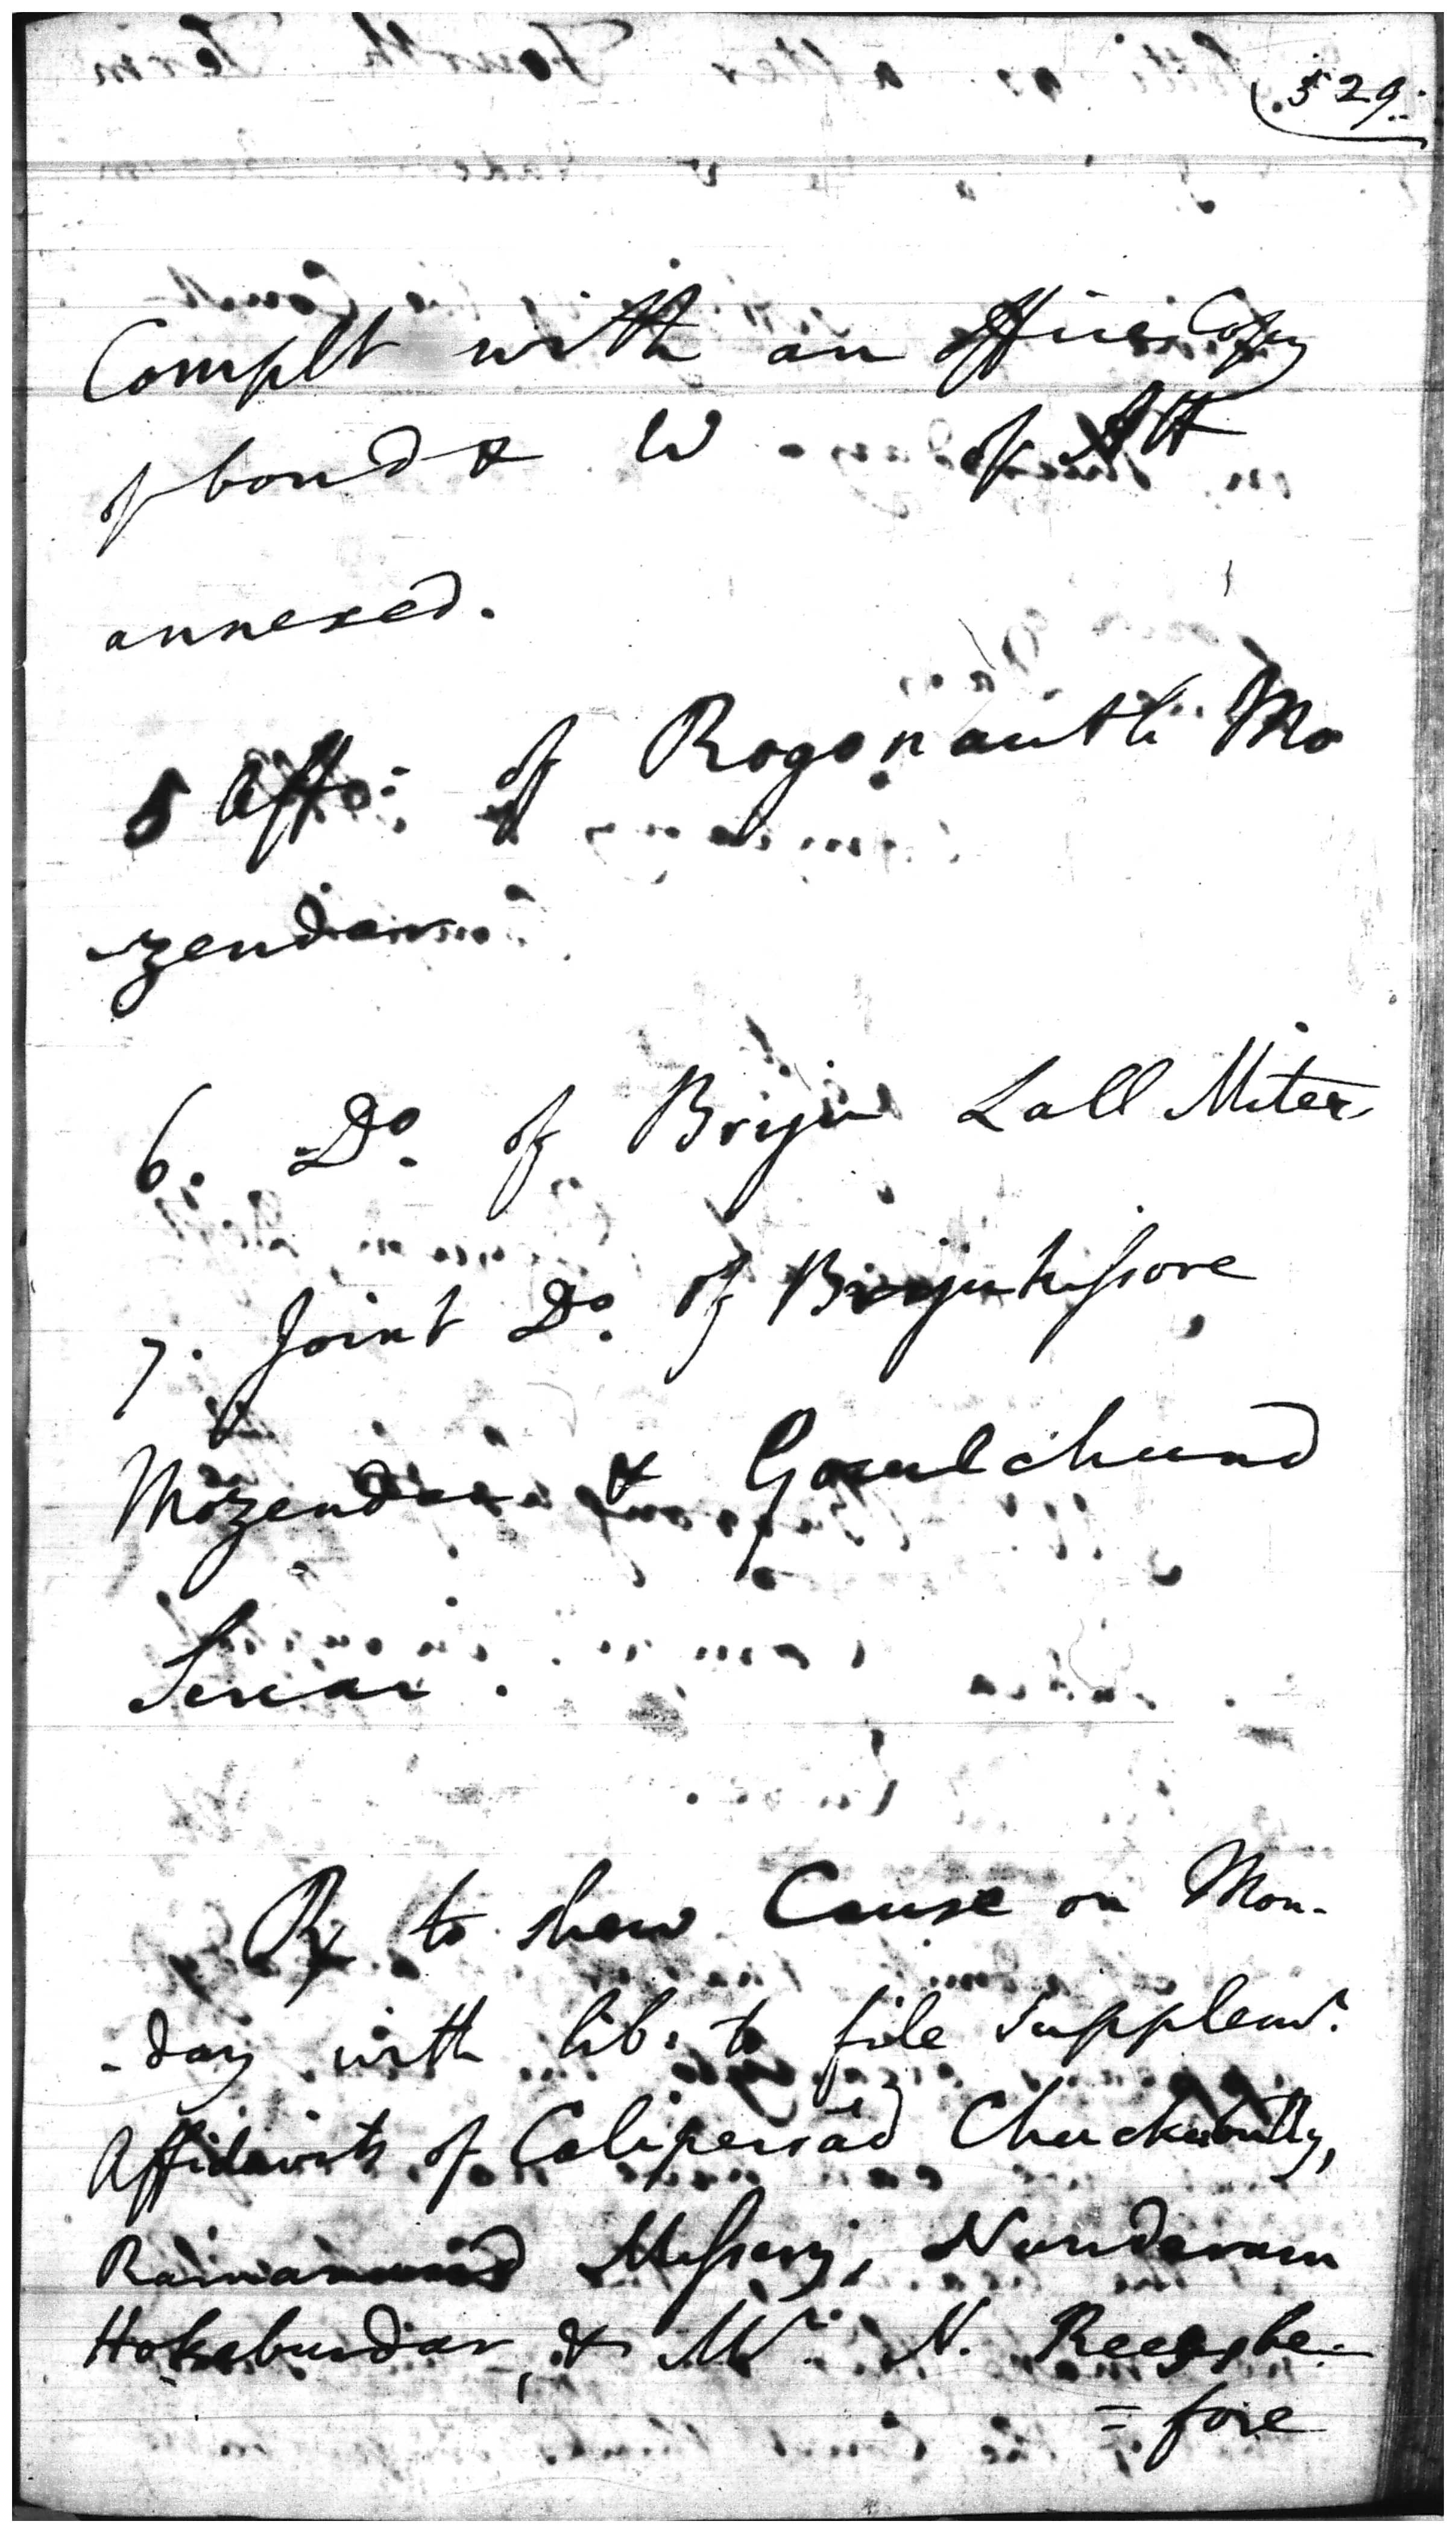 529.
Complt with an Office Copy
of bond & W of Att
annexed.
5 Afft: of Rogonauth Mo
-zendar
6. Do. of Briju Lall Miter
7. Joint Do. of Brijukissore
Mozendar & Goculchund
Sircar.
Rx to shew Cause on Mon-
-day with lib. to file supplemt.
Affidavits of Calipersad Chuckerbutty,
Ramanund Missery, Nunderam
Hokaburdar, & Mr. N. Rees be-
= fore